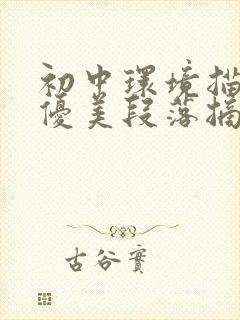 初中環境描
優美段落摘
古谷實